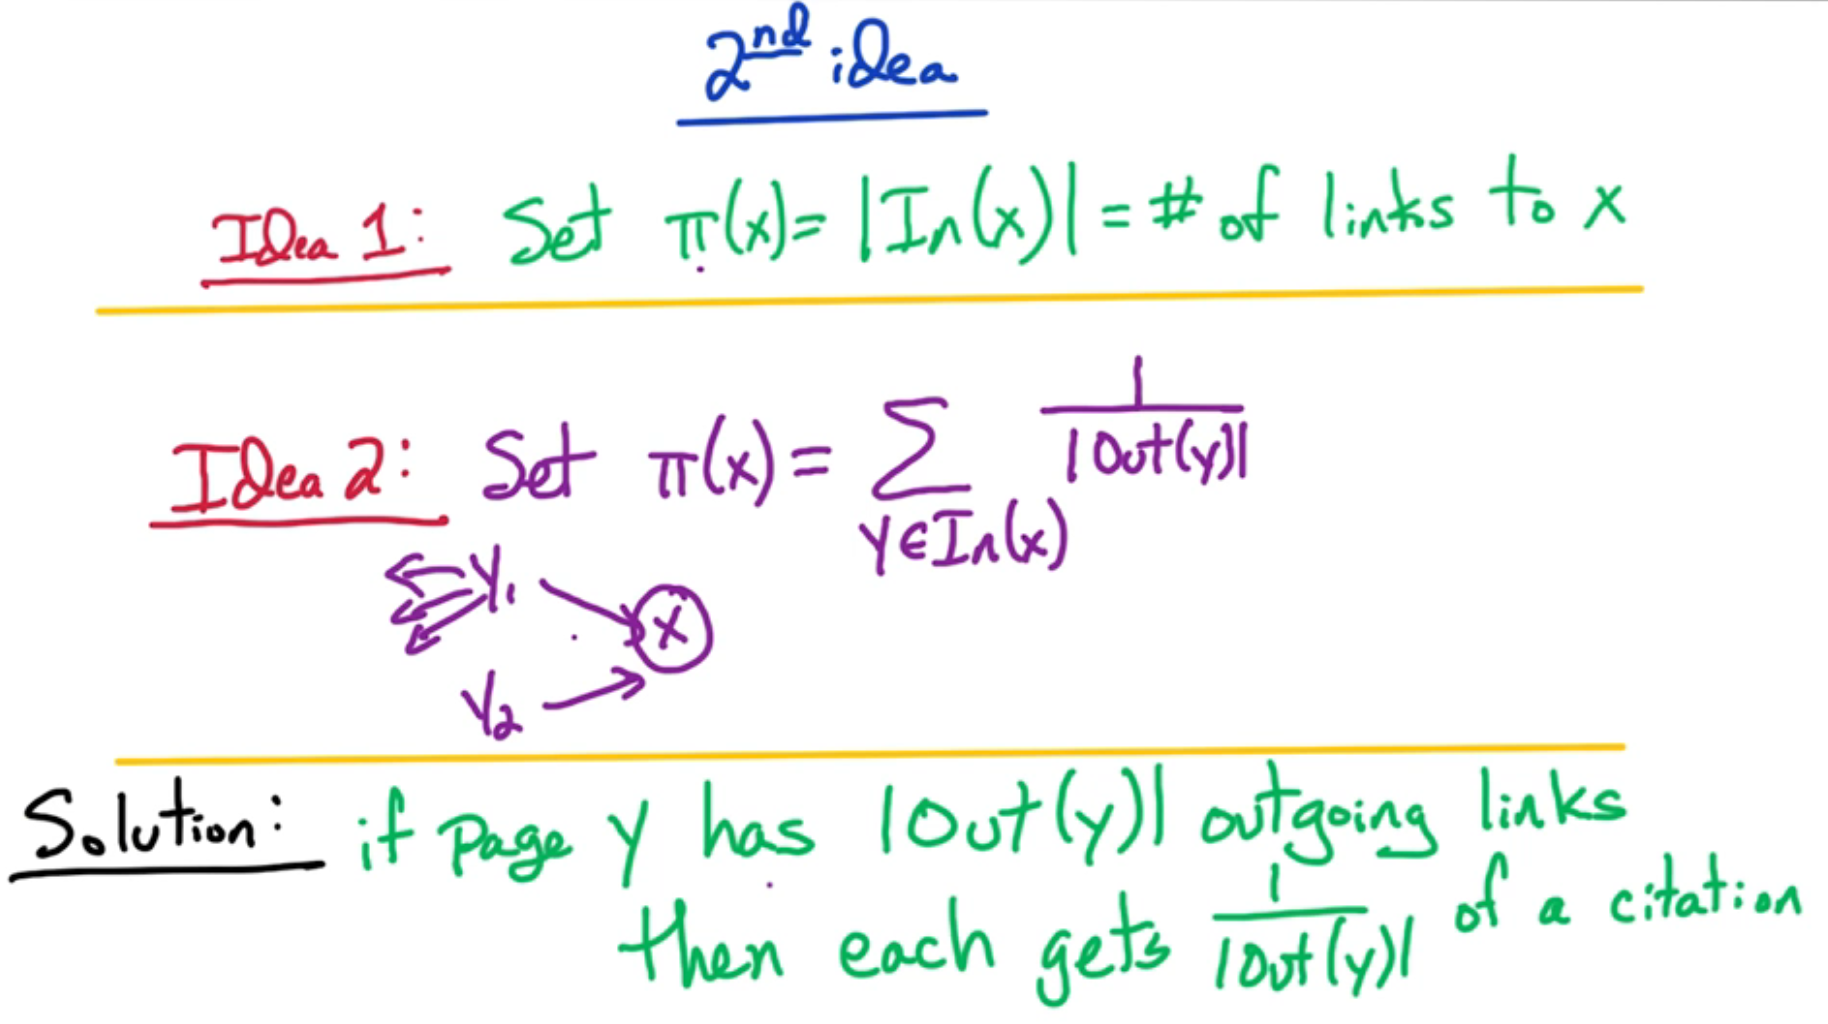 2nd idea
Idea 1: Set π(x) = |In(x)| = # of links to x
Idea 2: Set π(x) = ∑ y∈In(x) 1/|Out(y)|
y₁
x
y₂
Solution: if page y has |Out(y)| outgoing links
then each gets 1/|Out(y)| of a citation